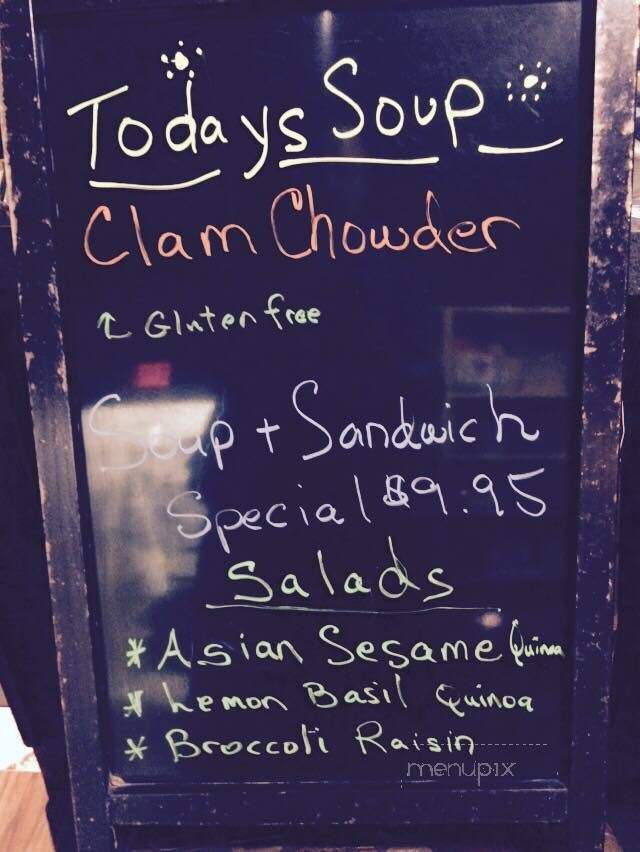 Todays Soup
Clam Chowder
↑ Gluten free
Soup + Sandwich
Special $9.95
Salads
* Asian Sesame Quinoa
* Lemon Basil Quinoa
* Broccoli Raisin
menupix